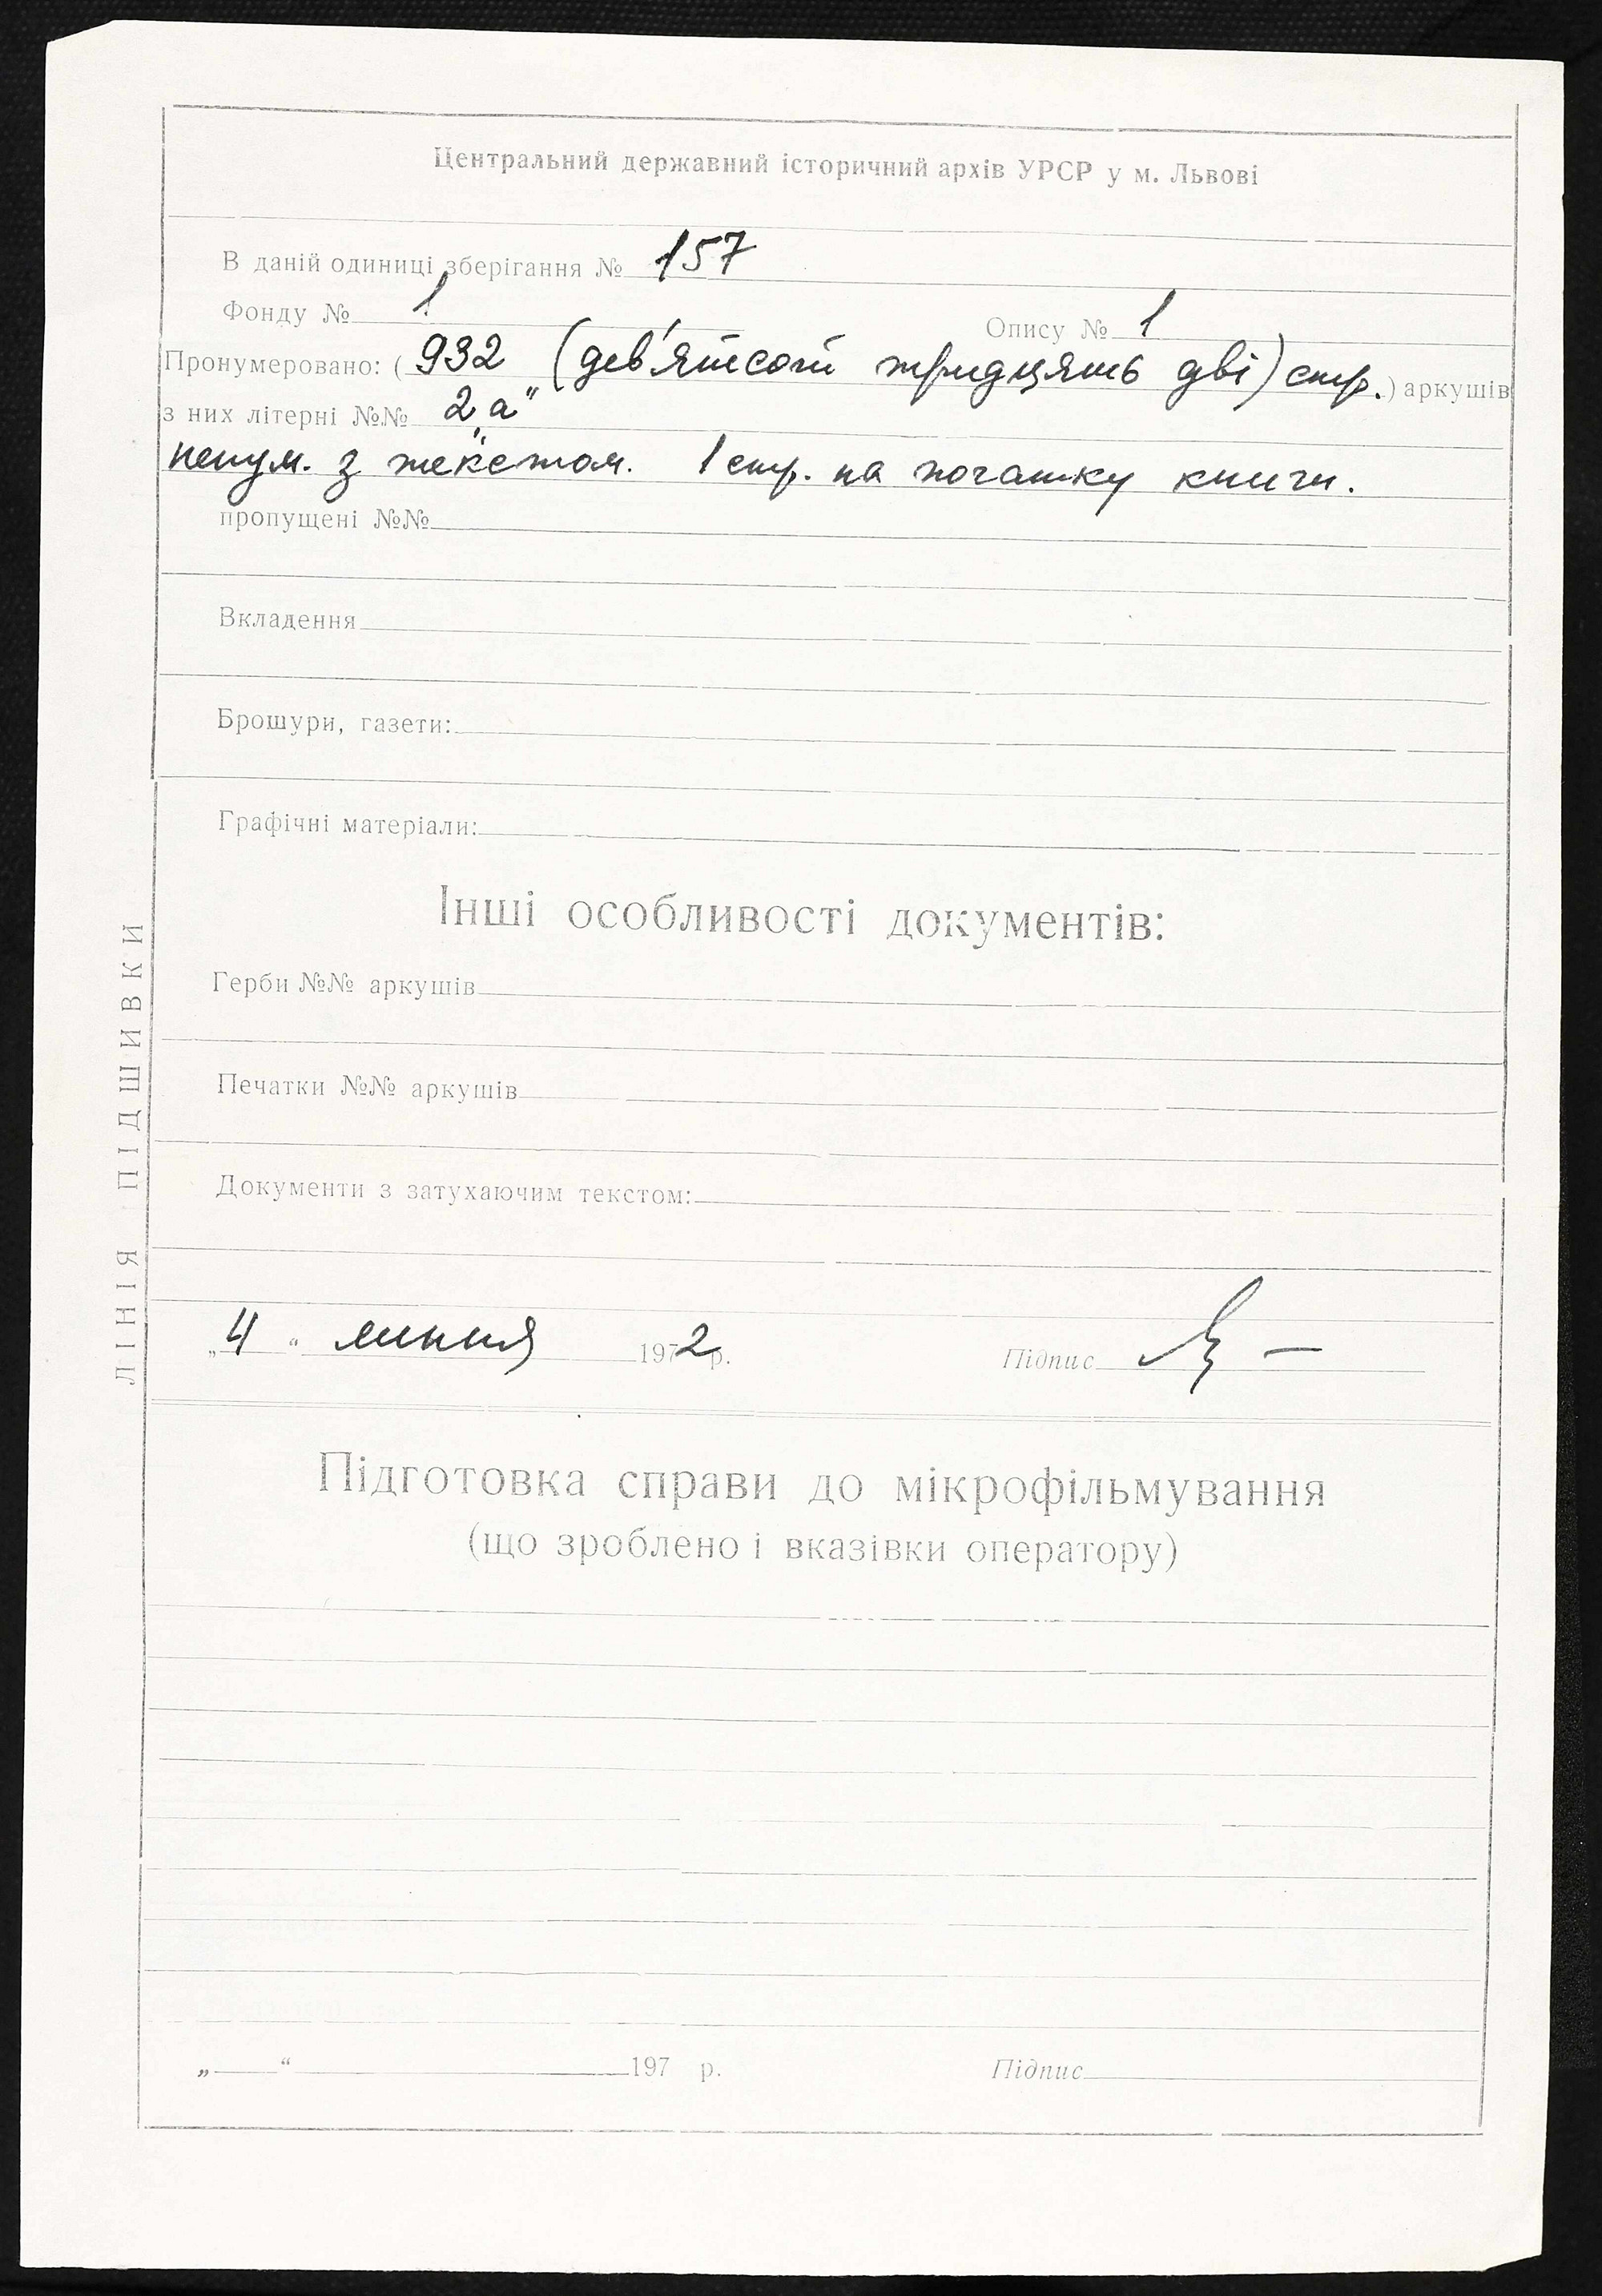 Центральний державний історичний архів УРСР у м. Львові
В даній одиниці зберігання № 157
Фонду № 1 Опису № 1
Пронумеровано: ( 932 (дев'ятсот тридцять дві) стр. ) аркушів
з них літерні №№ 2 „а"
ненум. з текстом. 1 стр. на початку книги.
пропущені №№
Вкладення
Брошури, газети:
Графічні матеріали:
Інші особливості документів:
Герби №№ аркушів
Печатки №№ аркушів
Документи з затухаючим текстом:
„4“ липня 1972 р. Підпис
Підготовка справи до мікрофільмування
(що зроблено і вказівки оператору)
„ “ 197 р. Підпис
ЛІНІЯ ПІДШИВКИ